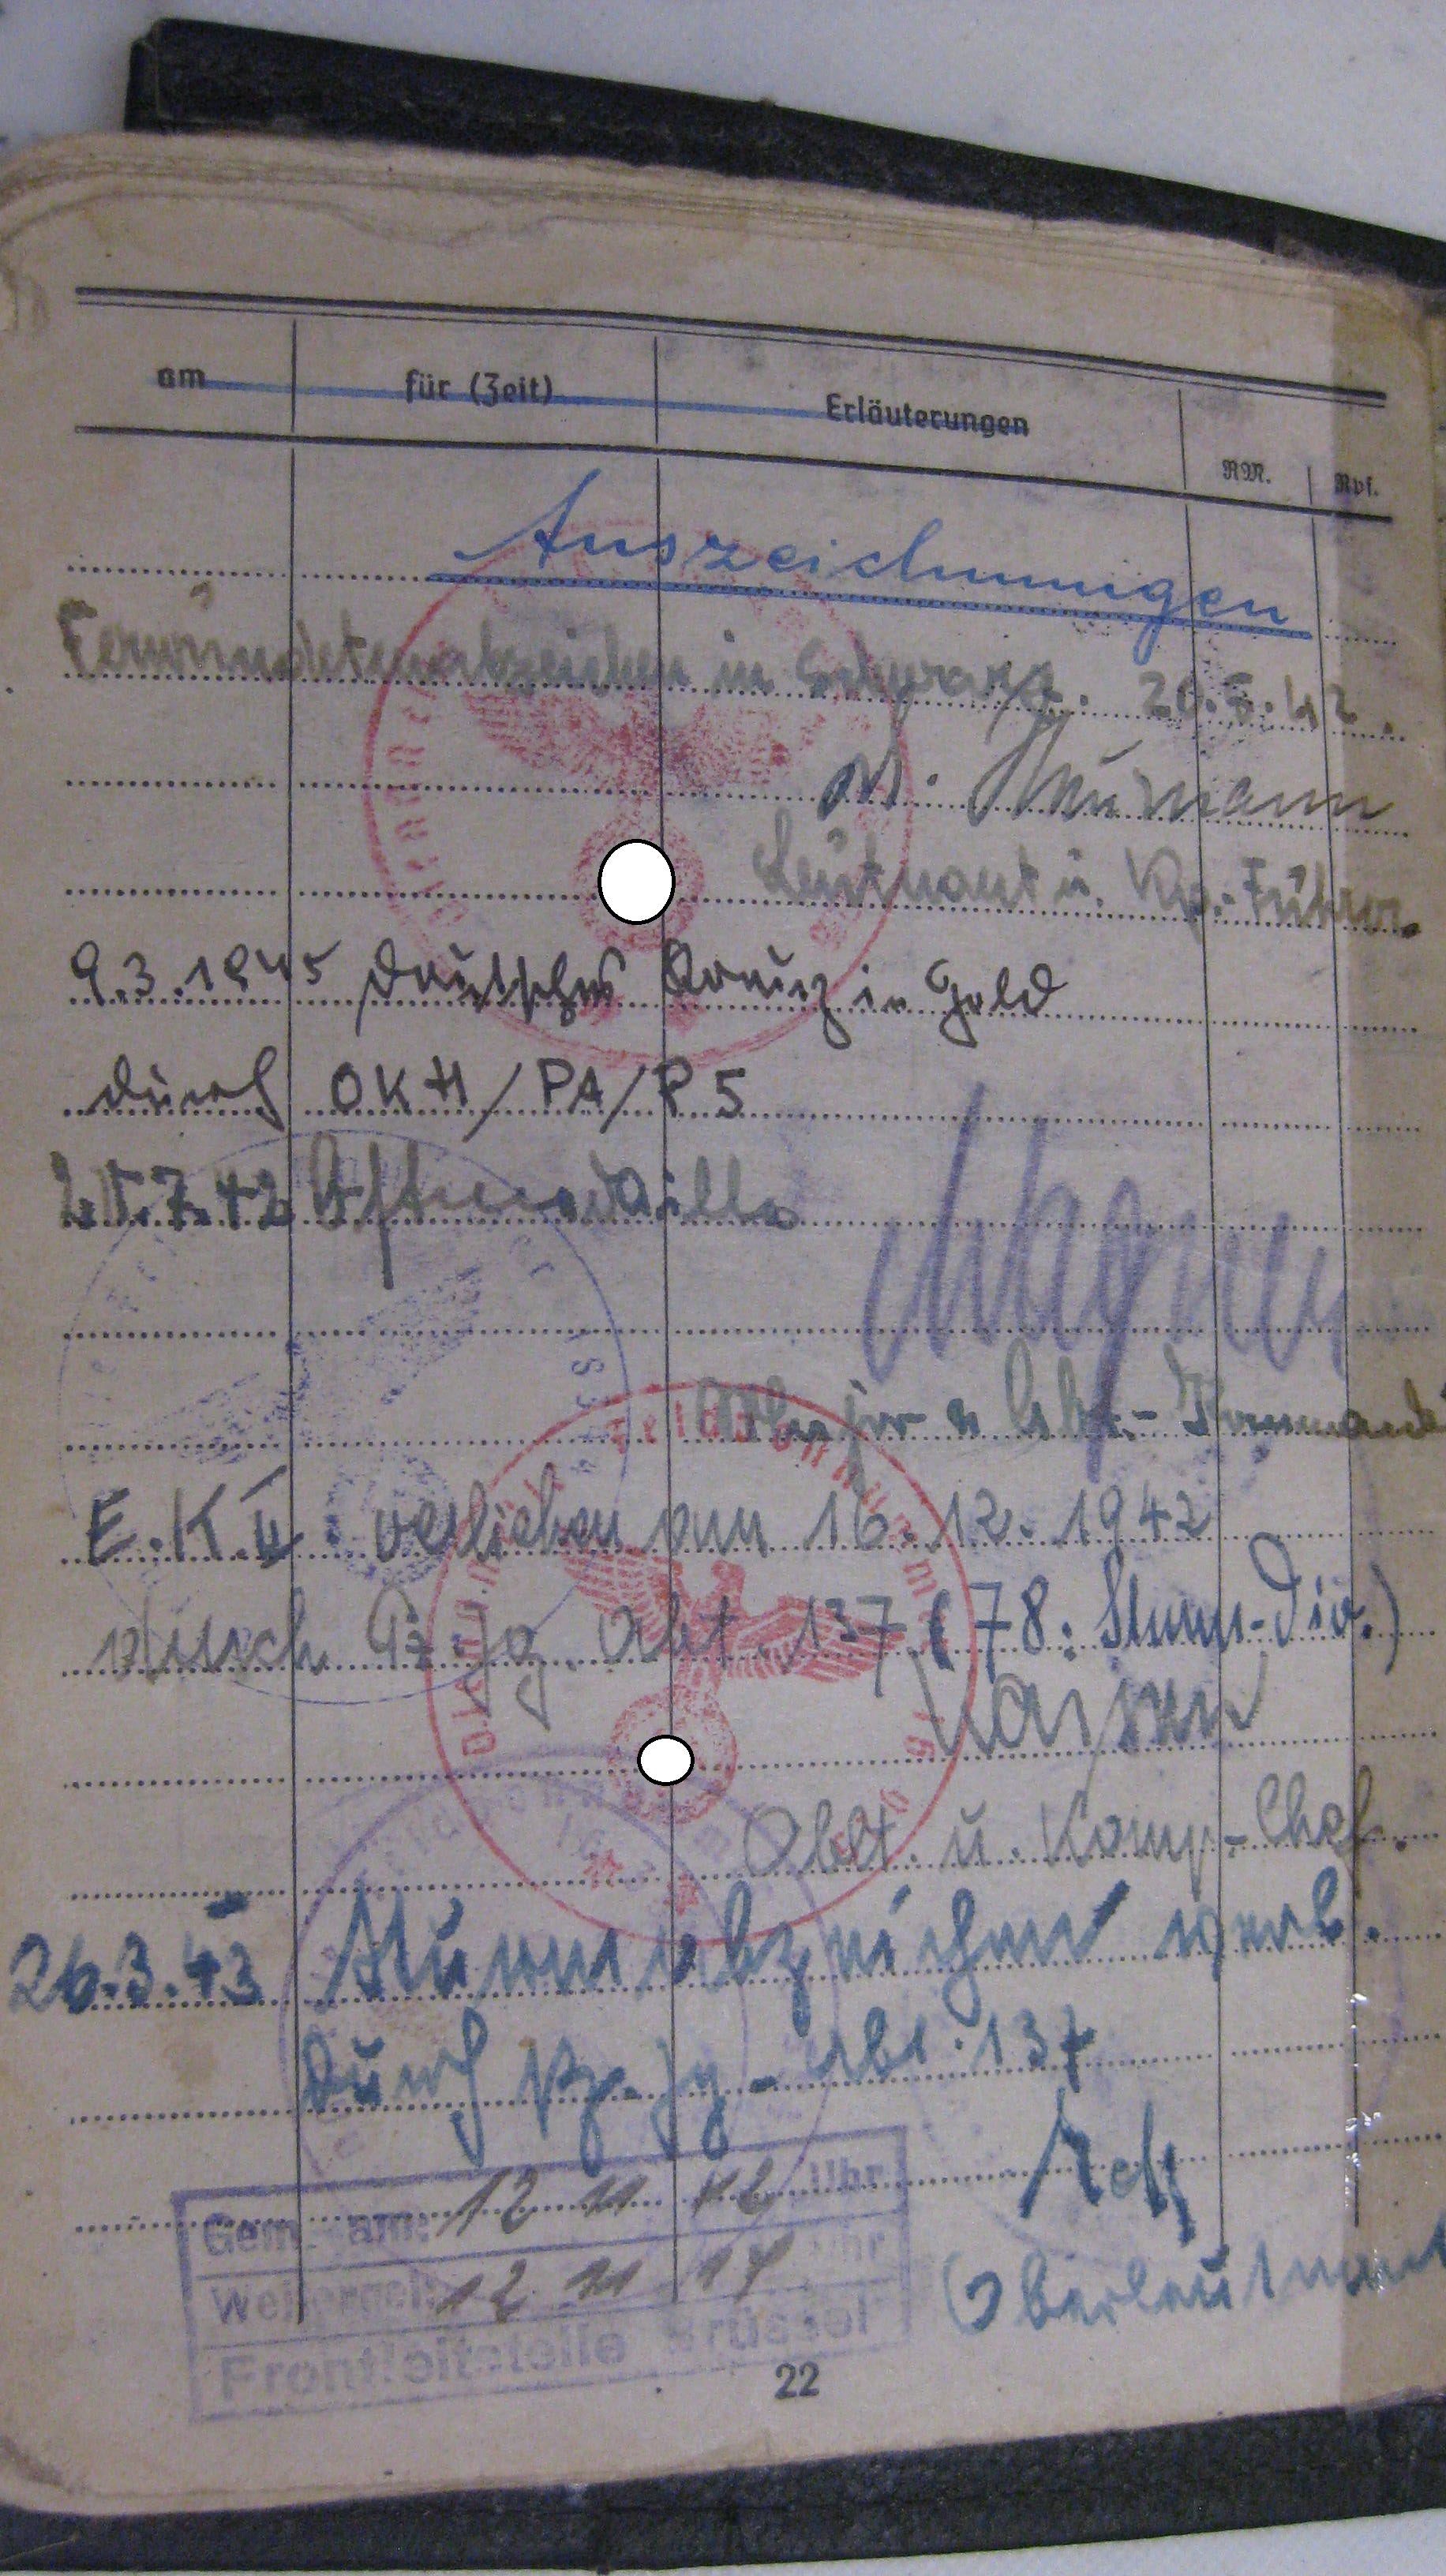 am für (Zeit) Erläuterungen
RM. Rpf.
Auszeichnungen
Verwundetenabzeichen in Schwarz. 20.5.42.
Leutnant u. Kp.-Führer.
9.3.1945 Deutsches Kreuz in Gold
durch OKH/PA/P5
Ostmedaille
Major u. Kommand
E.K.II. verliehen am 16.12.1942
durch Pz.Jg. Abt. 137 (78. Sturm-Div.)
Oblt. u. Komp.-Chef.
26.3.43 Sturmabzeichen verl.
durch Pz.-Jg-Abt. 137
Oberleutnant
Gem. am: 12 11 Uhr
Weitergel. 12 11 17 Uhr
Frontleitstelle Brüssel
22